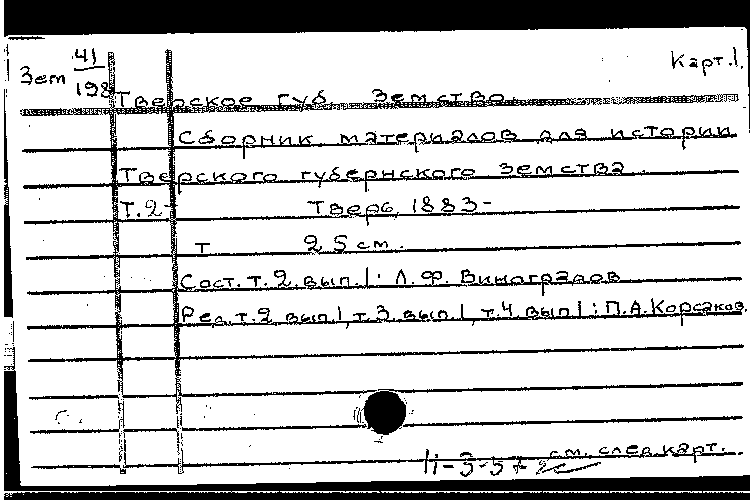 Зет 41/198
Карт. 1.
Тверское губ. земство.
Сборник материалов для истории
Тверского губернского земства.
Т. 2- Тверь, 1883-
т 25 см.
Сост. т. 2. вып. 1: Л. Ф. Виноградов
Ред. т. 2 вып. 1, т. 3. вып. 1, т. 4 вып 1: П. А. Корсаков.
см. след. карт.
11-3-57